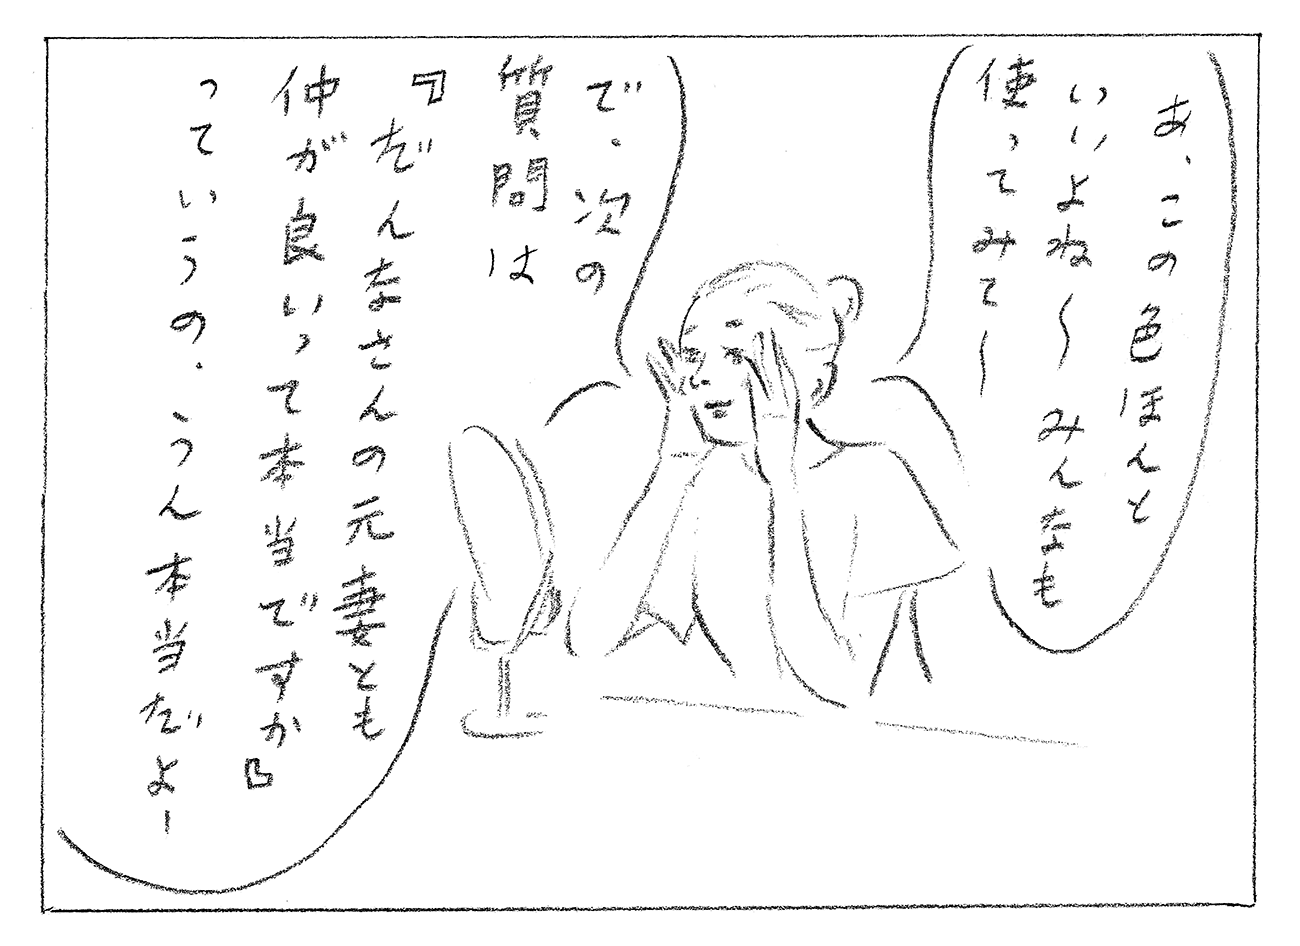 あ、この色ほんと
いいよね〜みんなも
使ってみて〜
で、次の
質問は
『だんなさんの元妻とも
仲が良いって本当ですか』
っていうの、うん本当だよー